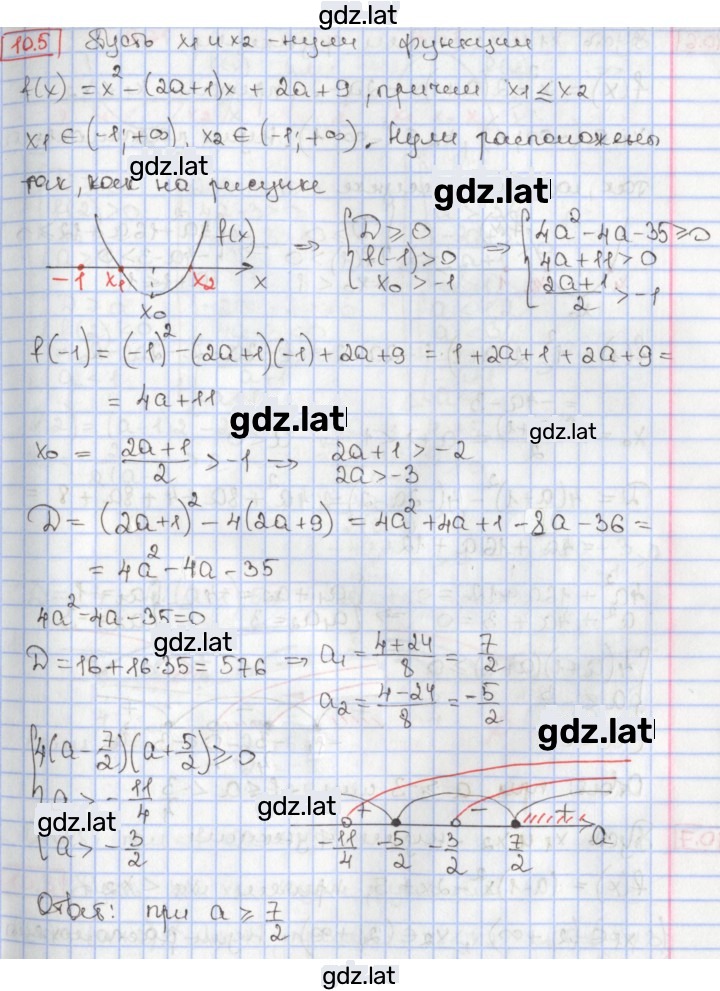 gdz.lat
10.5 Пусть x1 и x2 - нули функции
f(x) = x² - (2a+1)x + 2a+9, причем x1 ≤ x2
x1 ∈ (-1; +∞), x2 ∈ (-1; +∞). Нули расположены
gdz.lat
так, как на рисунке
gdz.lat
f(x) ⇒ { D ≥ 0 ⇒ { 4a² - 4a - 35 ≥ 0
f(-1) > 0 4a + 11 > 0
-1 x1 x2 x x0 > -1 (2a+1)/2 > -1
x0
f(-1) = (-1)² - (2a+1)(-1) + 2a+9 = 1+2a+1+2a+9 =
= 4a+11
gdz.lat
gdz.lat
x0 = (2a+1)/2 > -1 ⇒ 2a+1 > -2
2a > -3
D = (2a+1)² - 4(2a+9) = 4a² + 4a + 1 - 8a - 36 =
= 4a² - 4a - 35
4a² - 4a - 35 = 0
gdz.lat
D = 16 + 16·35 = 576 ⇒ a1 = (4+24)/8 = 7/2
a2 = (4-24)/8 = -5/2
gdz.lat
{ 4(a - 7/2)(a + 5/2) ≥ 0
a > -11/4
gdz.lat
gdz.lat
a > -3/2
+ - +
-11/4 -5/2 -3/2 7/2 a
Ответ: при a ≥ 7/2
gdz.lat